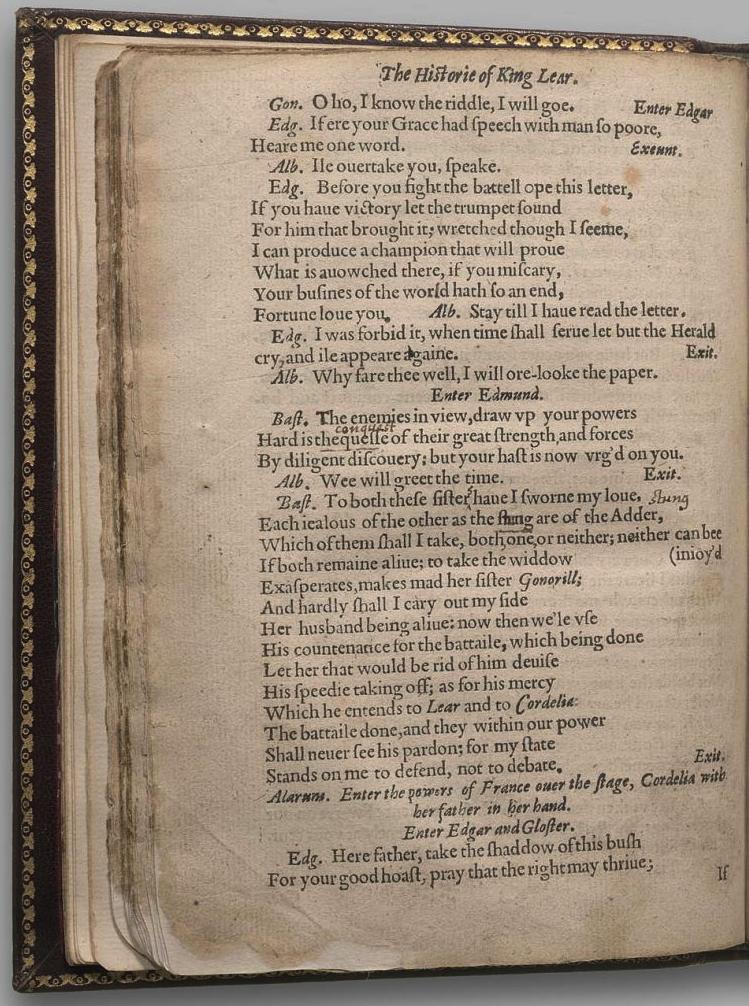 The Historie of King Lear.
Gon. O ho, I know the riddle, I will goe. Enter Edgar
Edg. If ere your Grace had ſpeech with man ſo poore,
Heare me one word. Exeunt.
Alb. Ile ouertake you, ſpeake.
Edg. Before you fight the battell ope this letter,
If you haue victory let the trumpet ſound
For him that brought it; wretched though I ſeeme,
I can produce a champion that will proue
What is auowched there, if you miſcary,
Your buſines of the world hath ſo an end,
Fortune loue you, Alb. Stay till I haue read the letter.
Edg. I was forbid it, when time ſhall ſerue let but the Herald
cry, and ile appeare againe. Exit.
Alb. Why fare thee well, I will ore-looke the paper.
Enter Edmund.
Baſt. The enemies in view, draw vp your powers
conquest
Hard is the queſſe of their great ſtrength, and forces
By diligent diſcouery; but your haſt is now vrg'd on you.
Alb. Wee will greet the time. Exit.
Baſt. To both theſe ſiſterſ haue I ſworne my loue, stung
Each iealous of the other as the ſtung are of the Adder,
Which of them ſhall I take, both, one, or neither; neither can bee
If both remaine aliue; to take the widdow (inioy'd
Exaſperates, makes mad her ſiſter Gonorill;
And hardly ſhall I cary out my ſide
Her husband being aliue: now then we'le vſe
His countenance for the battaile, which being done
Let her that would be rid of him deuiſe
His ſpeedie taking off; as for his mercy
Which he entends to Lear and to Cordelia:
The battaile done, and they within our power
Shall neuer ſee his pardon; for my ſtate
Stands on me to defend, not to debate. Exit.
Alarum. Enter the powers of France ouer the ſtage, Cordelia with
her father in her hand.
Enter Edgar and Gloſter.
Edg. Here father, take the ſhaddow of this buſh
For your good hoaſt, pray that the right may thriue;
If